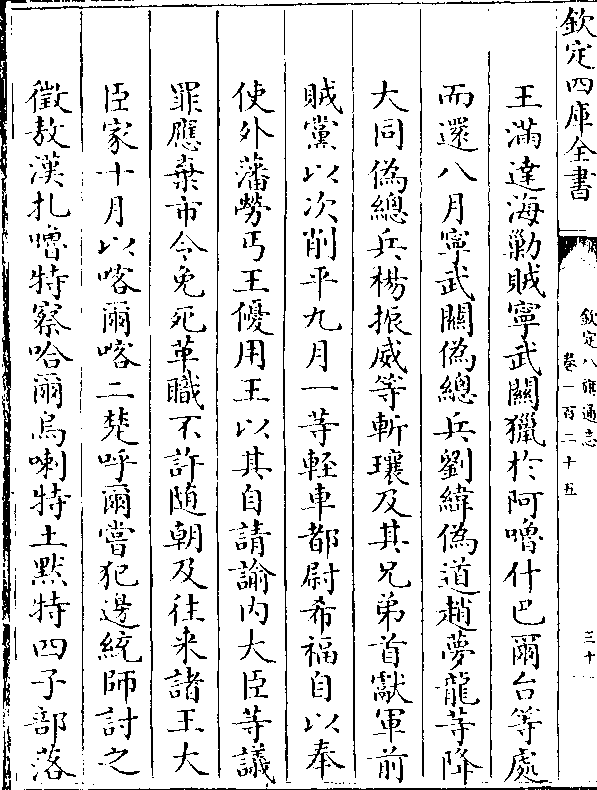 欽定四庫全書
欽定八旗通志
卷一百二十五
三十
王滿達海勦賊寧武關獵於阿嚕什巴爾台等處
而還八月寧武關偽總兵劉緯偽道趙夢龍等降
大同偽總兵楊振威等斬瓖及其兄弟首獻軍前
賊黨以次削平九月一等輕車都尉希福自以奉
使外藩勞丐王優用王以其自請諭内大臣等議
罪應棄市令免死革職不許隨朝及往来諸王大
臣家十月以喀爾喀二楚呼爾嘗犯邊統師討之
徵敖漢扎嚕特察哈爾烏喇特土默特四子部落